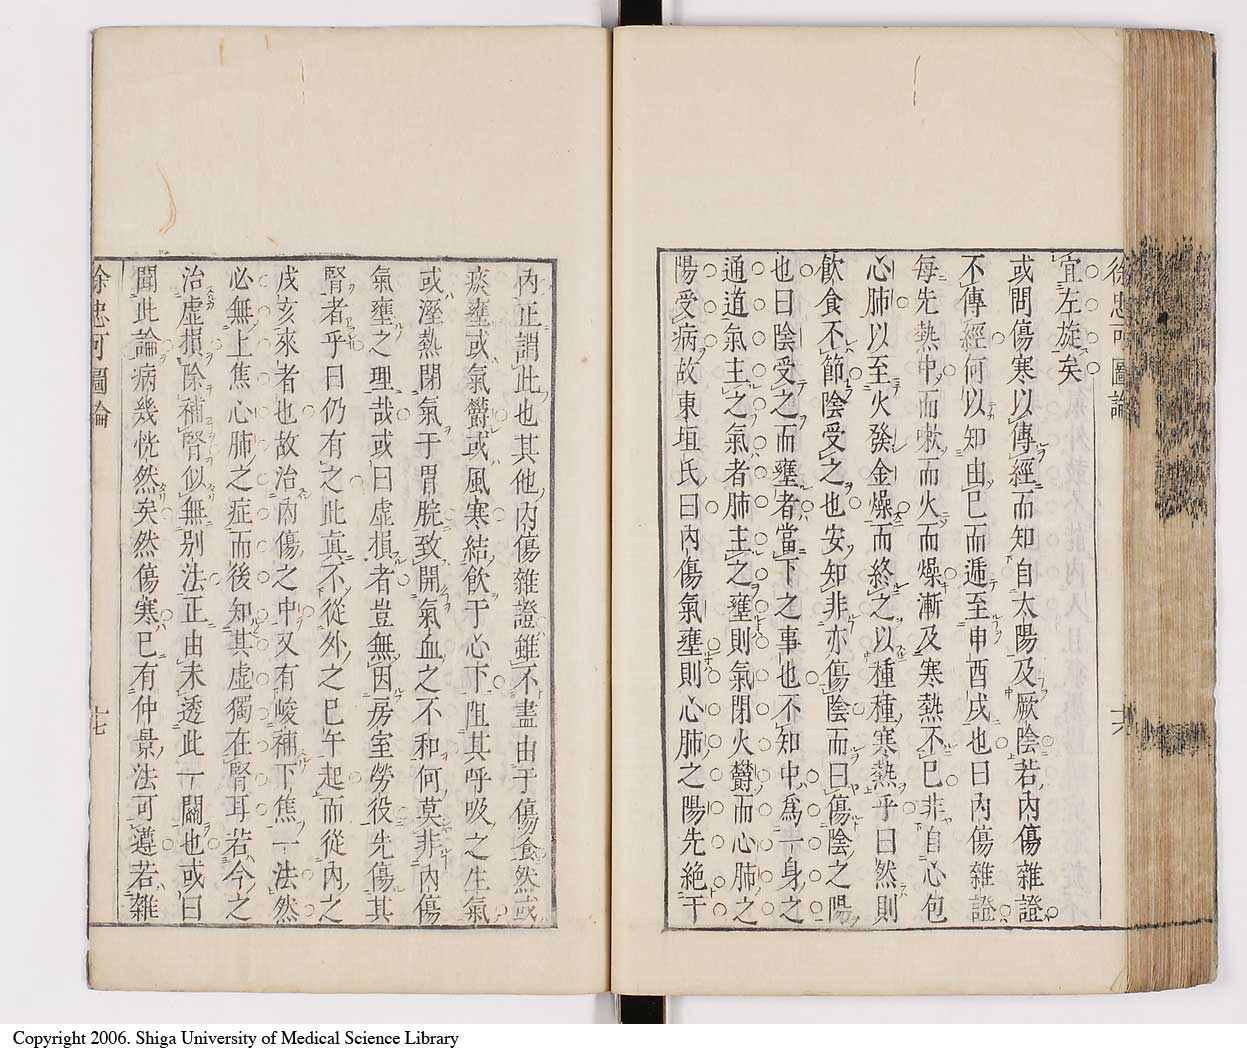 徐忠可圖論
宜左旋矣
或問傷寒以傳經而知自太陽及厥陰若內傷雜證
不傳經何以知由巳而遞至申酉戌也曰內傷雜證
每先熱中而嗽而火而燥漸及寒熱不已非自心包
心肺以至火發金燥而終之以種種寒熱乎曰然則
飲食不節陰受之也安知非亦傷陰而曰傷陰之陽
也曰陰受之而壅者當下之事也不知中爲一身之
通道氣主之氣者肺主之壅則氣閉火欝而心肺之
陽受病故東垣氏曰內傷氣壅則心肺之陽先絕于
十六
內正謂此也其他內傷雜證雖不盡由于傷食然或
痰壅或氣欝或風寒結飲于心下阻其呼吸之生氣
或溼熱閉氣于胃脘致開氣血之不和何莫非內傷
氣壅之理哉或曰虛損者豈無因房室勞役先傷其
腎者乎曰仍有之此真不從外之巳午起而從內之
戌亥來者也故治內傷之中又有峻補下焦一法然
必無上焦心肺之症而後知其虛獨在腎耳若今之
治虛損除補腎似無别法正由未透此一關也或曰
聞此論病幾恍然矣然傷寒已有仲景法可遵若雜
徐忠可圖論
十七
Copyright 2006. Shiga University of Medical Science Library